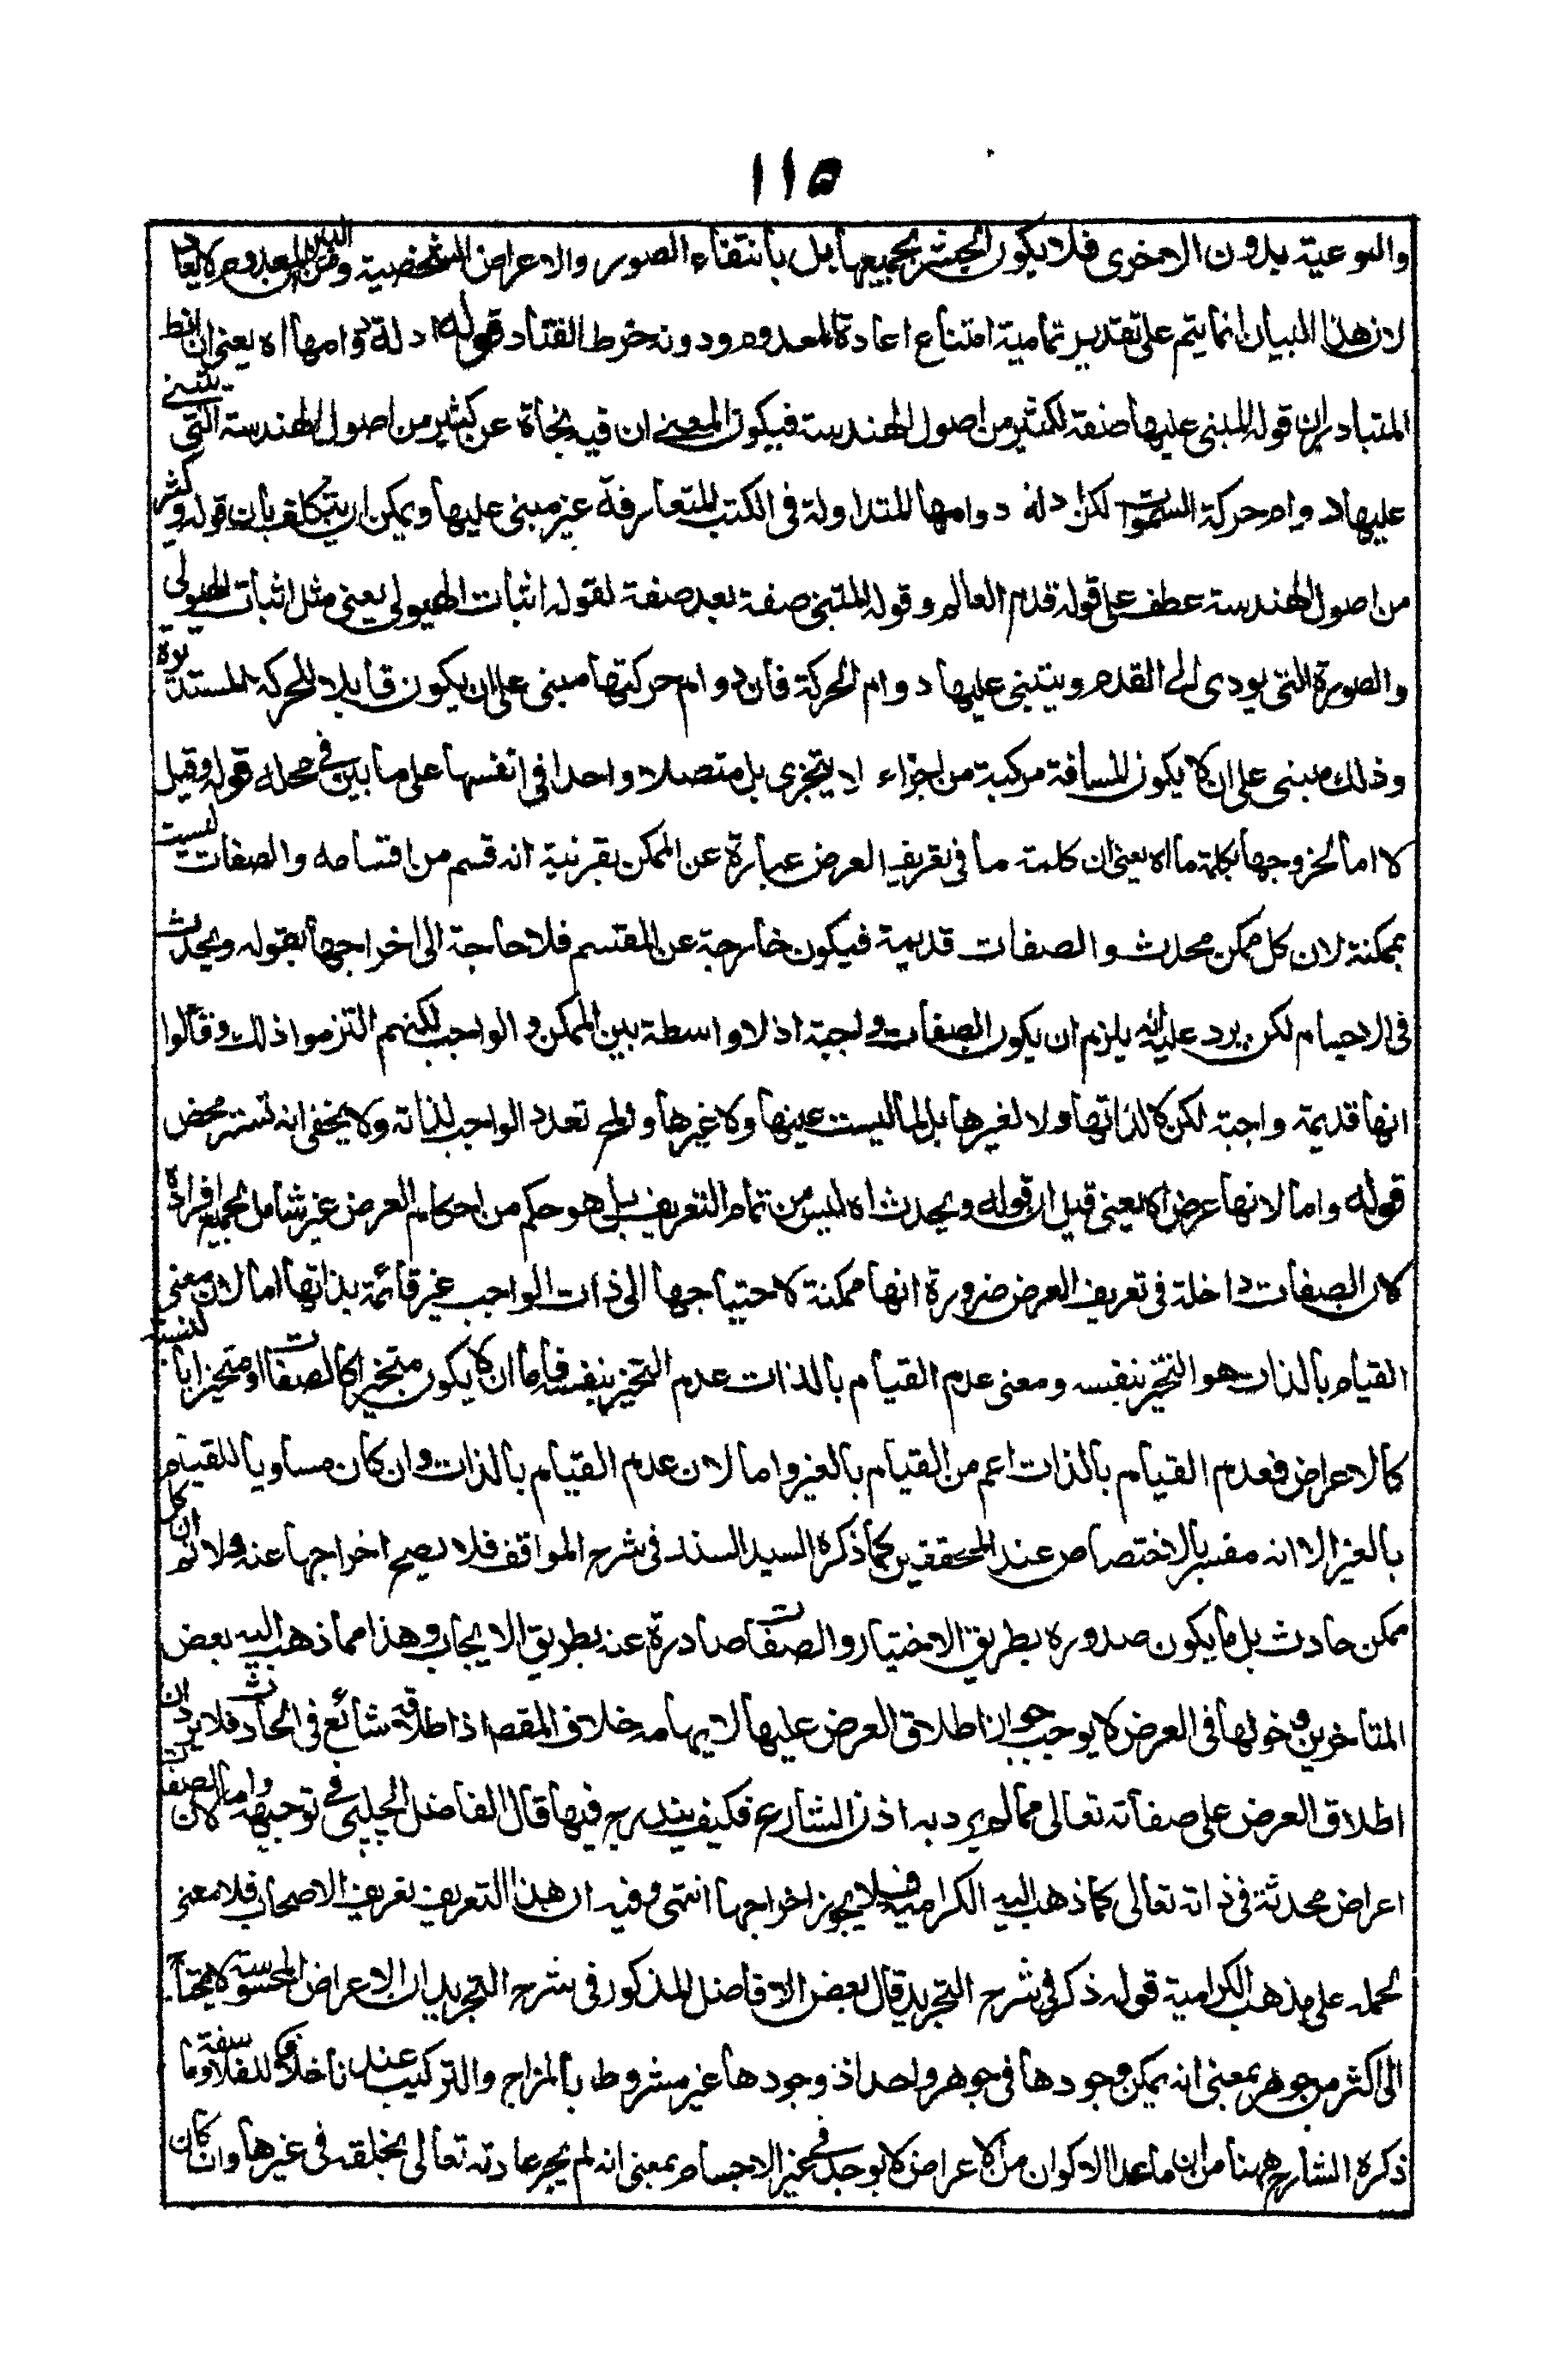 ١١٥
والنوعية بدون الاخرى فلا يكون الحشر بجميعها بل بانتفاء الصور والاعراض الشخصية ومن البين ان المعدوم لا يعاد
لان هذا البيان انما يتم على تقدير تمامية امتناع اعادة المعدوم ودونه خرط القتاد قوله ادلة دوامها اه يعنى ان الظ
المتبادر ان قوله المبنى عليها صفة لكثير من اصول الهندسة فيكون المعنى ان فيه نجاة عن كثير من اصول الهندسة التى يبتنى
عليها دوام حركة السموات لكن ادلة دوامها المتداولة فى الكتب المتعارفة غير مبنى عليها ويمكن ان يتكلف بان قوله وكثير
من اصول الهندسة عطف على قوله قدم العالم وقوله المبتنى صفة بعد صفة لقوله اثبات الهيولى يعنى مثل اثبات الهيولى
والصورة التى يودى الى القدم ويبتنى عليها دوام الحركة فان دوام حركتها مبنى على ان يكون قابلا للحركة المستديرة
وذلك مبنى على ان لا يكون المسافة مركبة من اجزاء لا يتجزى بل متصلا واحدا فى انفسها على ما بين فى محله قوله وقيل
لا اما لخروجها بكلمة ما اه يعنى ان كلمة ما فى تعريف العرض عبارة عن الممكن بقرنية انه قسم من اقسامه والصفات ليست
بممكنة لان كل ممكن محدث والصفات قديمة فيكون خارجة عن المقسم فلا حاجة الى اخراجها بقوله ويحدث
فى الاجسام لكن يرد عليه انه يلزم ان يكون الصفات واجبة اذ لا واسطة بين الممكن والواجب لكنهم التزموا ذلك وقالوا
انها قديمة واجبة لكن لا لذاتها ولا لغيرها بل لما ليست عينها ولا غيرها ولم تعدد الواجب لذاته ولا يخفى انه تستر محض
قوله واما لانها عرض اه يعنى قيل ان قوله ويحدث اه ليس من تمام التعريف بل هو حكم من احكام العرض غير شامل لجميع افراده
لان الصفات داخلة فى تعريف العرض ضرورة انها ممكنة لاحتياجها الى ذات الواجب غير قائمة بذاتها اما لان معنى
القيام بالذات هو التحيز بنفسه ومعنى عدم القيام بالذات عدم التحيز بنفسه فاما ان لا يكون متحيزا كالصفات او متحيزا بالنسبة
كالاعراض فعدم القيام بالذات اعم من القيام بالغير واما لان عدم القيام بالذات وان كان مساويا للقيام
بالغير الا انه مفسر بالاختصاص عند المحققين كما ذكره السيد السند فى شرح المواقف فلا يصح اخراجها عنه ولا نم ان كل
ممكن حادث بل ما يكون صدوره بطريق الاختيار والصفات صادرة عنه بطريق الايجاب وهذا مما ذهب اليه بعض
المتاخرين ودخولها فى العرض لا يوجب جواز اطلاق العرض عليها لايهامه خلاف المقص اذ اطلاقه شائع فى الحادث فلا يرد ان
اطلاق العرض على صفاته تعالى مما لم يرد به اذن الشارع فكيف يندرج فيها قال الفاضل الچلپى فى توجيهه واما لان الصفات
اعراض محدثة فى ذاته تعالى كما ذهب اليه الكرامية فلا يجوز اخراجها انتهى وفيه ان هذا التعريف تعريف الاصحاب فلا معنى
لحمله على مذهب الكرامية قوله ذكر فى شرح التجريد قال بعض الافاضل المذكور فى شرح التجريد ان الاعراض المحسوسة لا يحتاج
الى اكثر من جوهر بمعنى انه يمكن وجودها فى جوهر واحد اذ وجودها غير مشروط بالمزاج والتركيب عندنا خلافا للفلاسفة وما
ذكره الشارح ههنا من ان ما عدا الاكوان من الاعراض لا يوجد فى غير الاجسام بمعنى انه لم يجر عادته تعالى بخلقه فى غيرها وان كان